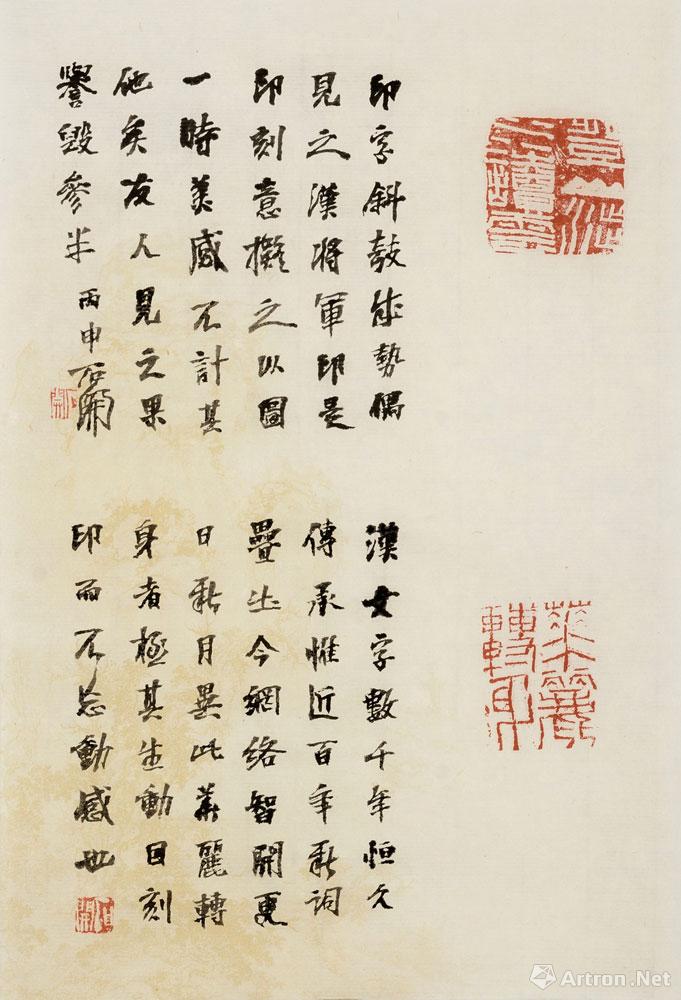 印字斜敧勢偶
見之漢將軍印是
印刻意擬之以圖
一時美感不計其
他矣友人見之果
譽毀參半 丙申石開
石開
華麗轉身
漢文字數千年恒久
傳承惟近百年新詞
疊出今網絡智開更
日新月異此華麗轉
身者極其生動因刻
印而不忘動感也
石開
Artron.Net